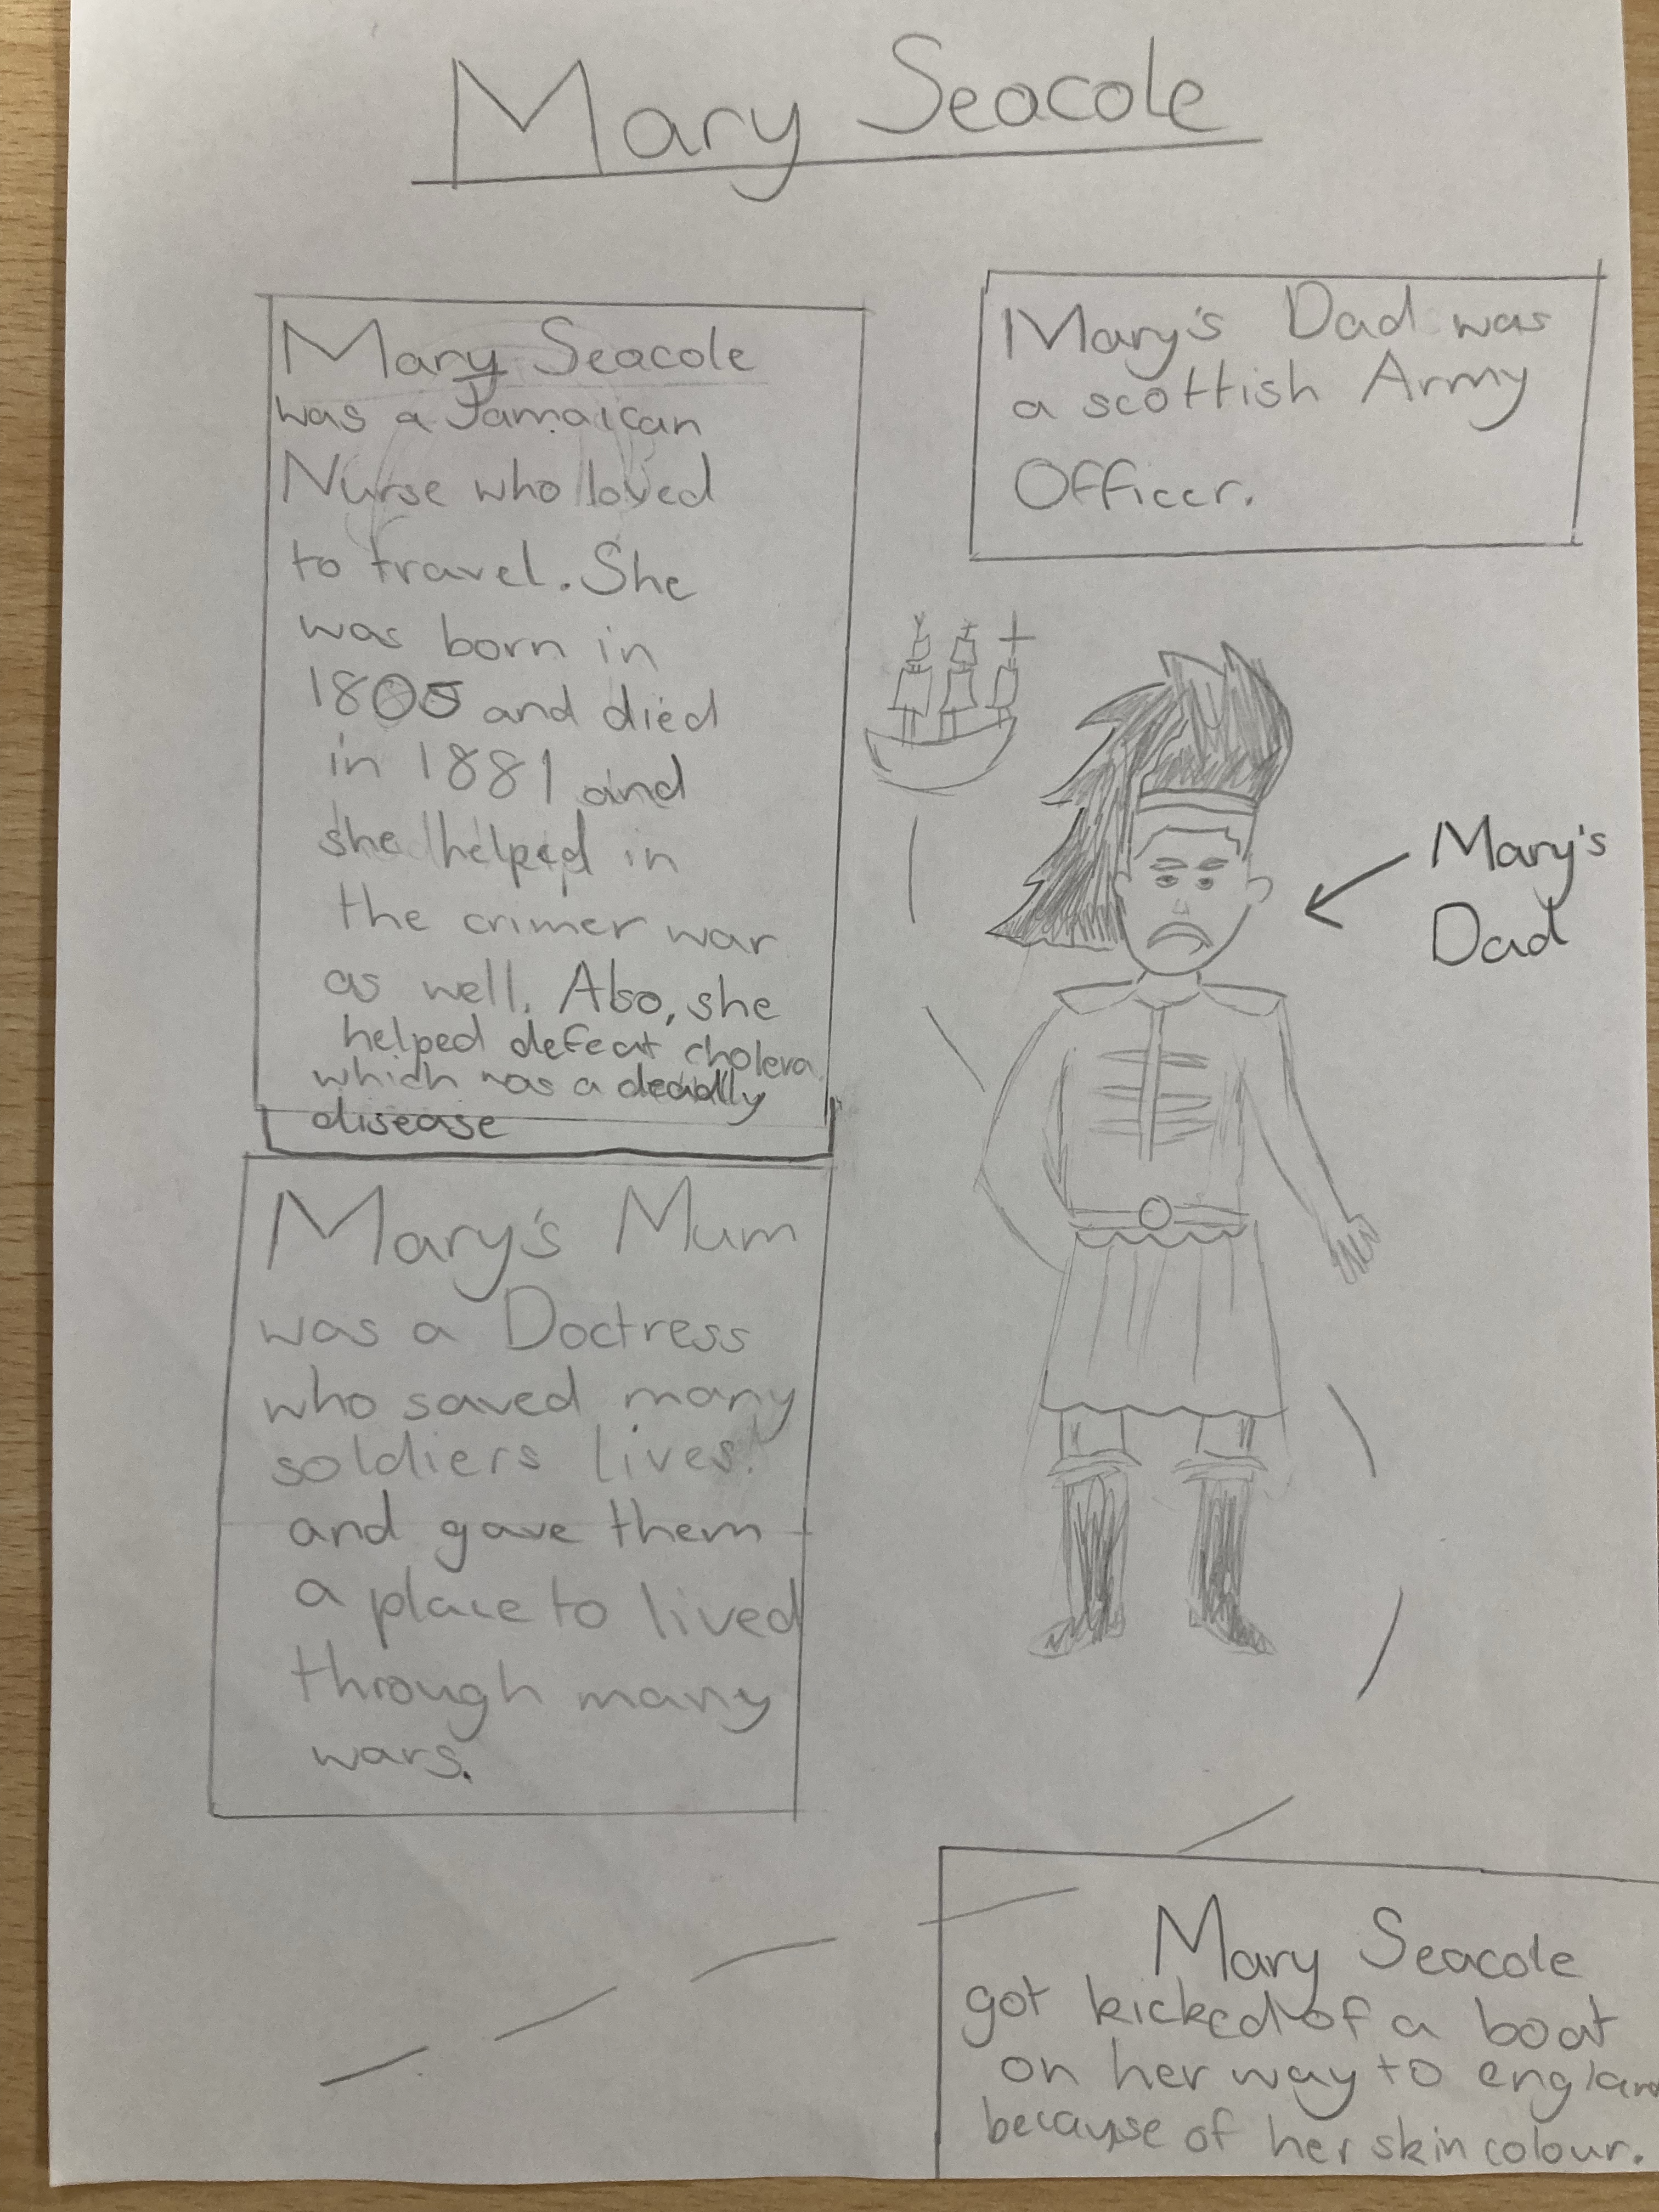 Mary Seacole
Mary Seacole
was a Jamaican
Nurse who loved
to travel. She
was born in
1805 and died
in 1881 and
she helped in
the crimer war
as well. Also, she
helped defeat cholera
which was a deadly
disease
Mary's Dad was
a scottish Army
Officer.
Mary's
Dad
Mary's Mum
was a Doctress
who saved many
soldiers lives.
and gave them
a place to lived
through many
wars.
Mary Seacole
got kicked of a boat
on her way to england
because of her skin colour.